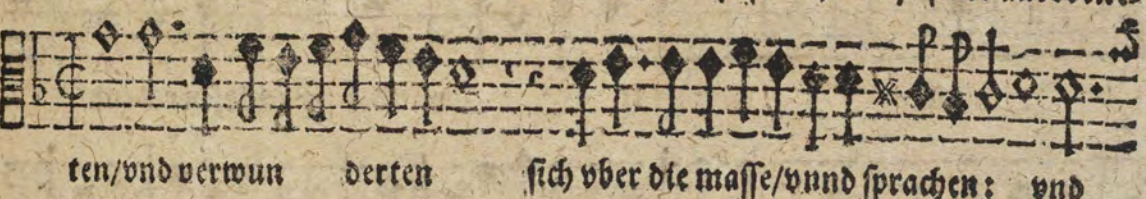 ten/vnd verwun derten sich vber die masse/vnnd sprachen: vnd